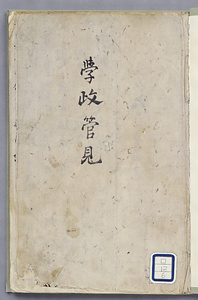 學政管見